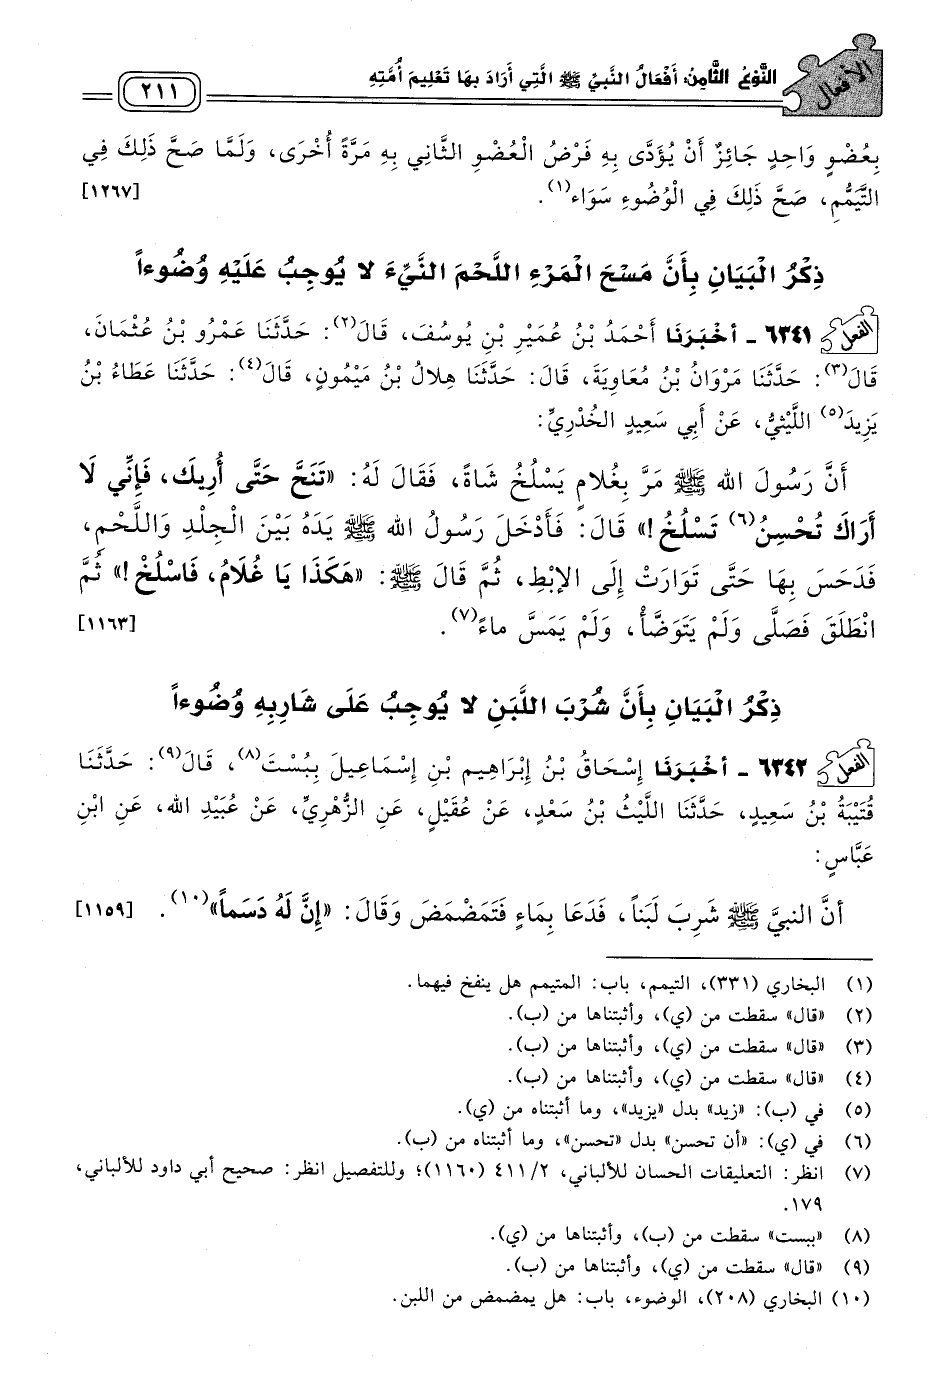 الأفعال
النَّوْعُ الثَّامِنُ: أَفْعَالُ النَّبِيِّ ﷺ الَّتِي أَرَادَ بِهَا تَعْلِيمَ أُمَّتِهِ
٢١١
بِعُضْوٍ وَاحِدٍ جَائِزٌ أَنْ يُؤَدَّى بِهِ فَرْضُ الْعُضْوِ الثَّانِي بِهِ مَرَّةً أُخْرَى، وَلَمَّا صَحَّ ذَلِكَ فِي
التَّيَمُّمِ، صَحَّ ذَلِكَ فِي الْوُضُوءِ سَوَاء(١). [١٢٦٧]
ذِكْرُ الْبَيَانِ بِأَنَّ مَسْحَ الْمَرْءِ اللَّحْمَ النَّيِّءَ لا يُوجِبُ عَلَيْهِ وُضُوءاً
الفعل ٦٣٤١ - أَخْبَرَنَا أَحْمَدُ بْنُ عُمَيْرِ بْنِ يُوسُفَ، قَالَ(٢): حَدَّثَنَا عَمْرُو بْنُ عُثْمَانَ،
قَالَ(٣): حَدَّثَنَا مَرْوَانُ بْنُ مُعَاوِيَةَ، قَالَ: حَدَّثَنَا هِلالُ بْنُ مَيْمُونٍ، قَالَ(٤): حَدَّثَنَا عَطَاءُ بْنُ
يَزِيدَ(٥) اللَّيْثِيُّ، عَنْ أَبِي سَعِيدٍ الْخُدْرِيِّ:
أَنَّ رَسُولَ الله ﷺ مَرَّ بِغُلامٍ يَسْلُخُ شَاةً، فَقَالَ لَهُ: «تَنَحَّ حَتَّى أُرِيكَ، فَإِنِّي لَا
أَرَاكَ تُحْسِنُ(٦) تَسْلُخُ!» قَالَ: فَأَدْخَلَ رَسُولُ الله ﷺ يَدَهُ بَيْنَ الْجِلْدِ وَاللَّحْمِ،
فَدَحَسَ بِهَا حَتَّى تَوَارَتْ إِلَى الإبْطِ، ثُمَّ قَالَ ﷺ: «هَكَذَا يَا غُلَامُ، فَاسْلُخْ!» ثُمَّ
انْطَلَقَ فَصَلَّى وَلَمْ يَتَوَضَّأْ، وَلَمْ يَمَسَّ ماءً(٧). [١١٦٣]
ذِكْرُ الْبَيَانِ بِأَنَّ شُرْبَ اللَّبَنِ لا يُوجِبُ عَلَى شَارِبِهِ وُضُوءاً
الفعل ٦٣٤٢ - أَخْبَرَنَا إِسْحَاقُ بْنُ إِبْرَاهِيم بْنِ إِسْمَاعِيلَ بِبُسْتَ(٨)، قَالَ(٩): حَدَّثَنَا
قُتَيْبَةُ بْنُ سَعِيدٍ، حَدَّثَنَا اللَّيْثُ بْنُ سَعْدٍ، عَنْ عُقَيْلٍ، عَنِ الزُّهْرِيِّ، عَنْ عُبَيْدِ الله، عَنِ ابْنِ
عَبَّاسٍ:
أنَّ النبيَّ ﷺ شَرِبَ لَبَناً، فَدَعَا بِمَاءٍ فَتَمَضْمَضَ وَقَالَ: «إِنَّ لَهُ دَسَماً»(١٠). [١١٥٩]
(١) البخاري (٣٣١)، التيمم، باب: المتيمم هل ينفخ فيهما.
(٢) «قال» سقطت من (ي)، وأثبتناها من (ب).
(٣) «قال» سقطت من (ي)، وأثبتناها من (ب).
(٤) «قال» سقطت من (ي)، وأثبتناها من (ب).
(٥) في (ب): «زيد» بدل «يزيد»، وما أثبتناه من (ي).
(٦) في (ي): «أن تحسن» بدل «تحسن»، وما أثبتناه من (ب).
(٧) انظر: التعليقات الحسان للألباني، ٤١١/٢ (١١٦٠)؛ وللتفصيل انظر: صحيح أبي داود للألباني،
١٧٩.
(٨) «ببست» سقطت من (ب)، وأثبتناها من (ي).
(٩) «قال» سقطت من (ي)، وأثبتناها من (ب).
(١٠) البخاري (٢٠٨)، الوضوء، باب: هل يمضمض من اللبن.